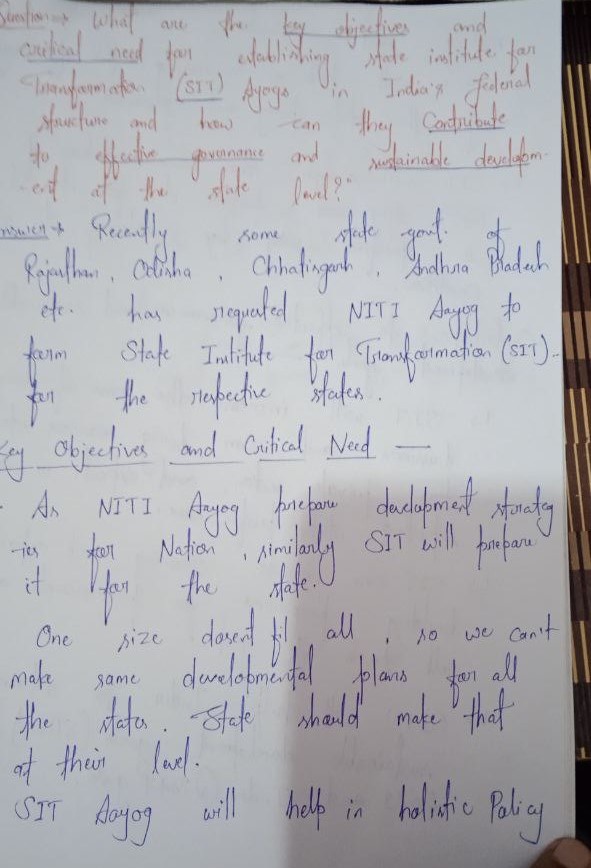 Question → What are the key objectives and
critical need for establishing state institute for
Transformation (SIT) Ayogs in India's federal
structure and how can they Contribute
to effective governance and sustainable developm-
ent at the state level?"
Answer → Recently some state govt. of
Rajasthan, Odisha, Chhatisgarh, Andhra Pradesh
etc. has requested NITI Aayog to
form State Institute for Transformation (SIT).
for the respective states.
Key Objectives and Critical Need —
As NITI Aayog prepare development strateg
-ies for Nation, similarly SIT will prepare
it for the state.
One size dosent fit all, so we can't
make same developmental plans for all
the states. State should make that
at their level.
SIT Aayog will help in holistic Policy